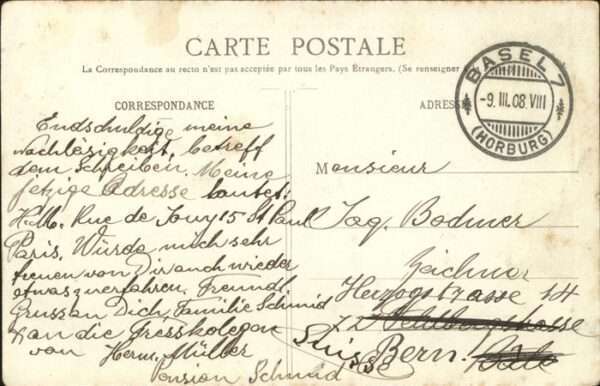 CARTE POSTALE
La Correspondance au recto n'est pas acceptée par tous les Pays Étrangers. (Se renseigner
CORRESPONDANCE
ADRESSE
BASEL 7
-9.III.08.VIII
(HORBURG)
Endschuldige meine
Nachläsigkeit, betreff
dem Schreiben. Meine
jetzige Adresse lautet:
H. M. Rue de Jouy 15 St Paul
Paris. Würde mich sehr
freuen von Dir auch wieder
etwas zu erfahren. Freundl.
Gruss an Dich, Familie Schmid
an die Fresskolegen
von Herm. Müller
Pension Schmid
Monsieur
Jaq. Bodmer
Zeichner
Herzogstrasse 14
72 Feldbergstrasse
Bern.
Bâle
Suisse